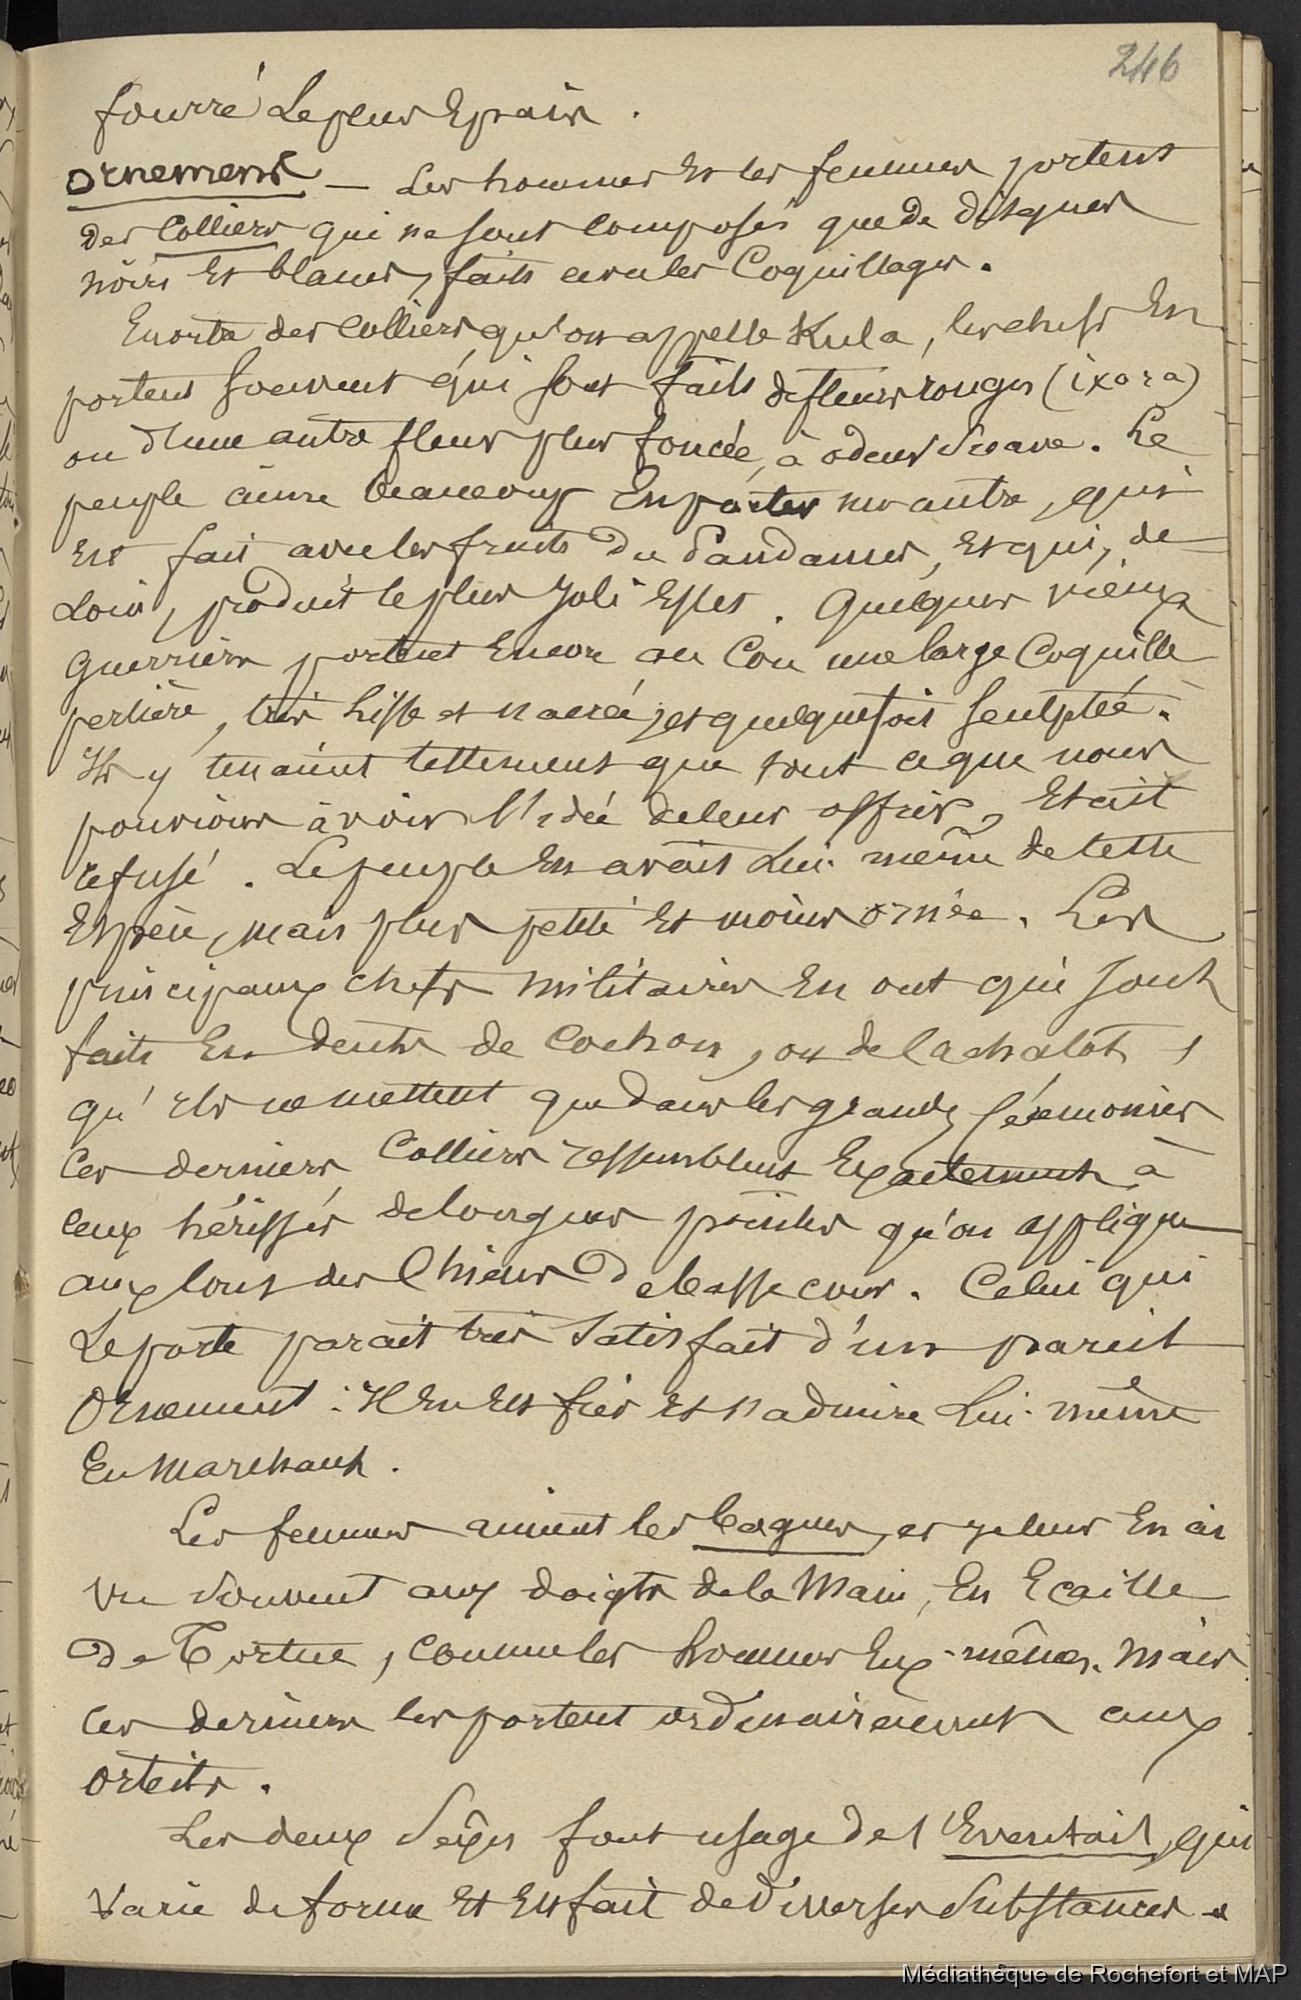 246
fourré le plus Epais.
ornement — Les hommes Et les femmes portent
des Colliers qui ne sont composés que de disques
noirs Et blancs, faits avec les Coquillages.
Outre des Colliers qu'on appelle Kula, les chefs En
portent souvent qui sont faits de fleurs rouges (ixora)
ou d'une autre fleur plus foncée, à odeur suave. Le
peuple aime beaucoup En porter un autre, qui
Est fait avec les fruits du Pandanus, Et qui, de
Loin, produit le plus joli Effet. Quelques vieux
guerriers portent Encore au Cou une large Coquille
perlière, très lisse et nacrée, et quelquefois sculptée.
Ils y tenaient tellement que tout ce que nous
pouvions avoir l'idée de leur offrir, Etait
refusé. Le peuple En avait Lui-même de cette
Espèce, mais plus petite Et moins ornée. Les
principaux chefs militaires En ont qui sont
faits En dents de Cochon, ou de Cachalot,
qu'ils ne mettent que dans les grandes Cérémonies
Ces derniers Colliers ressemblent Exactement à
Ceux hérissés de longues pointes qu'on applique
aux Cous des Chiens de basse cour. Celui qui
Le porte parait très satisfait d'un pareil
Ornement : Il En Est fier Et s'admire Lui-même
En Marchant.
Les femmes aiment les bagues, et je leur En ai
vu souvent aux doigts de la Main, En Ecaille
de Tortue, comme les hommes Eux-mêmes. Mais
ces derniers les portent ordinairement aux
Orteils.
Les deux Sexes font usage de l'Eventail, qui
Varie de forme Et Est fait de diverses substances.
Médiathèque de Rochefort et MAP